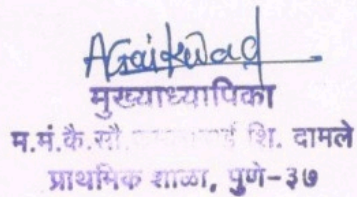 AGaikwad
मुख्याध्यापिका
म.मं.कै.सौ. शि. दामले
प्राथमिक शाळा, पुणे-३७